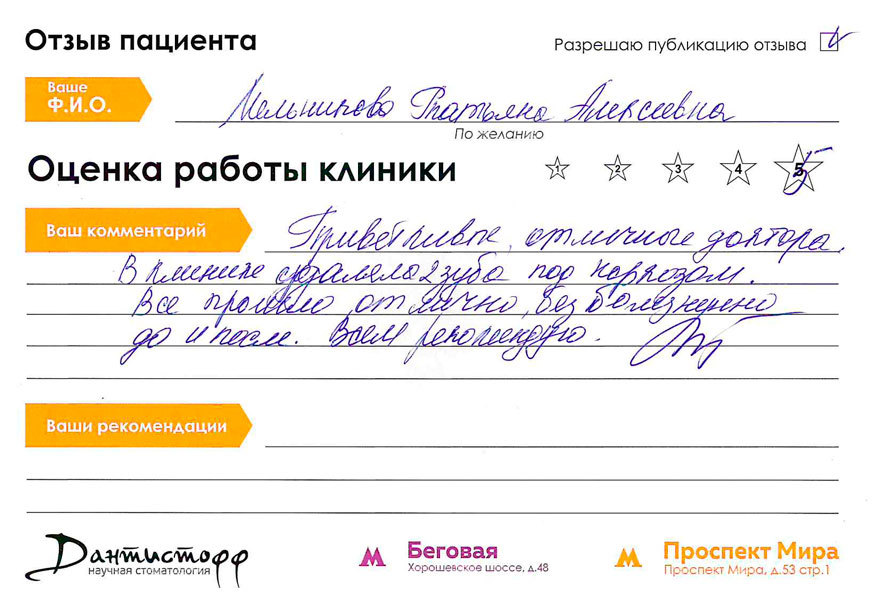 Отзыв пациента
Разрешаю публикацию отзыва
Ваше
Ф.И.О.
Мельникова Татьяна Алексеевна
По желанию
Оценка работы клиники
1 2 3 4 5
5
Ваш комментарий
Приветливые, отличные доктора.
В клинике удаляла 2 зуба под наркозом.
Все прошло отлично, безболезненно
до и после. Всем рекомендую.
Ваши рекомендации
Дантистофф
научная стоматология
Беговая
Хорошевское шоссе, д.48
Проспект Мира
Проспект Мира, д.53 стр.1